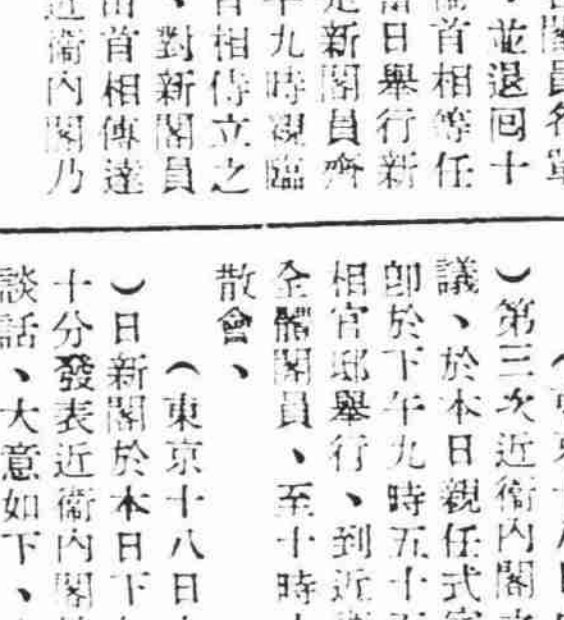 閣員名單
並退回十
首相等任
日舉行新
新閣員齊
九時親臨
相侍立之
對新閣員
首相傳達
近衞內閣乃
東京十八日
)第三次近衞內閣
議、於本日親任式
卽於下午九時五十
相官邸舉行、到近
全體閣員、至十時
散會、
(東京十八日
)日新閣於本日下
十分發表近衞內閣
談話、大意如下、